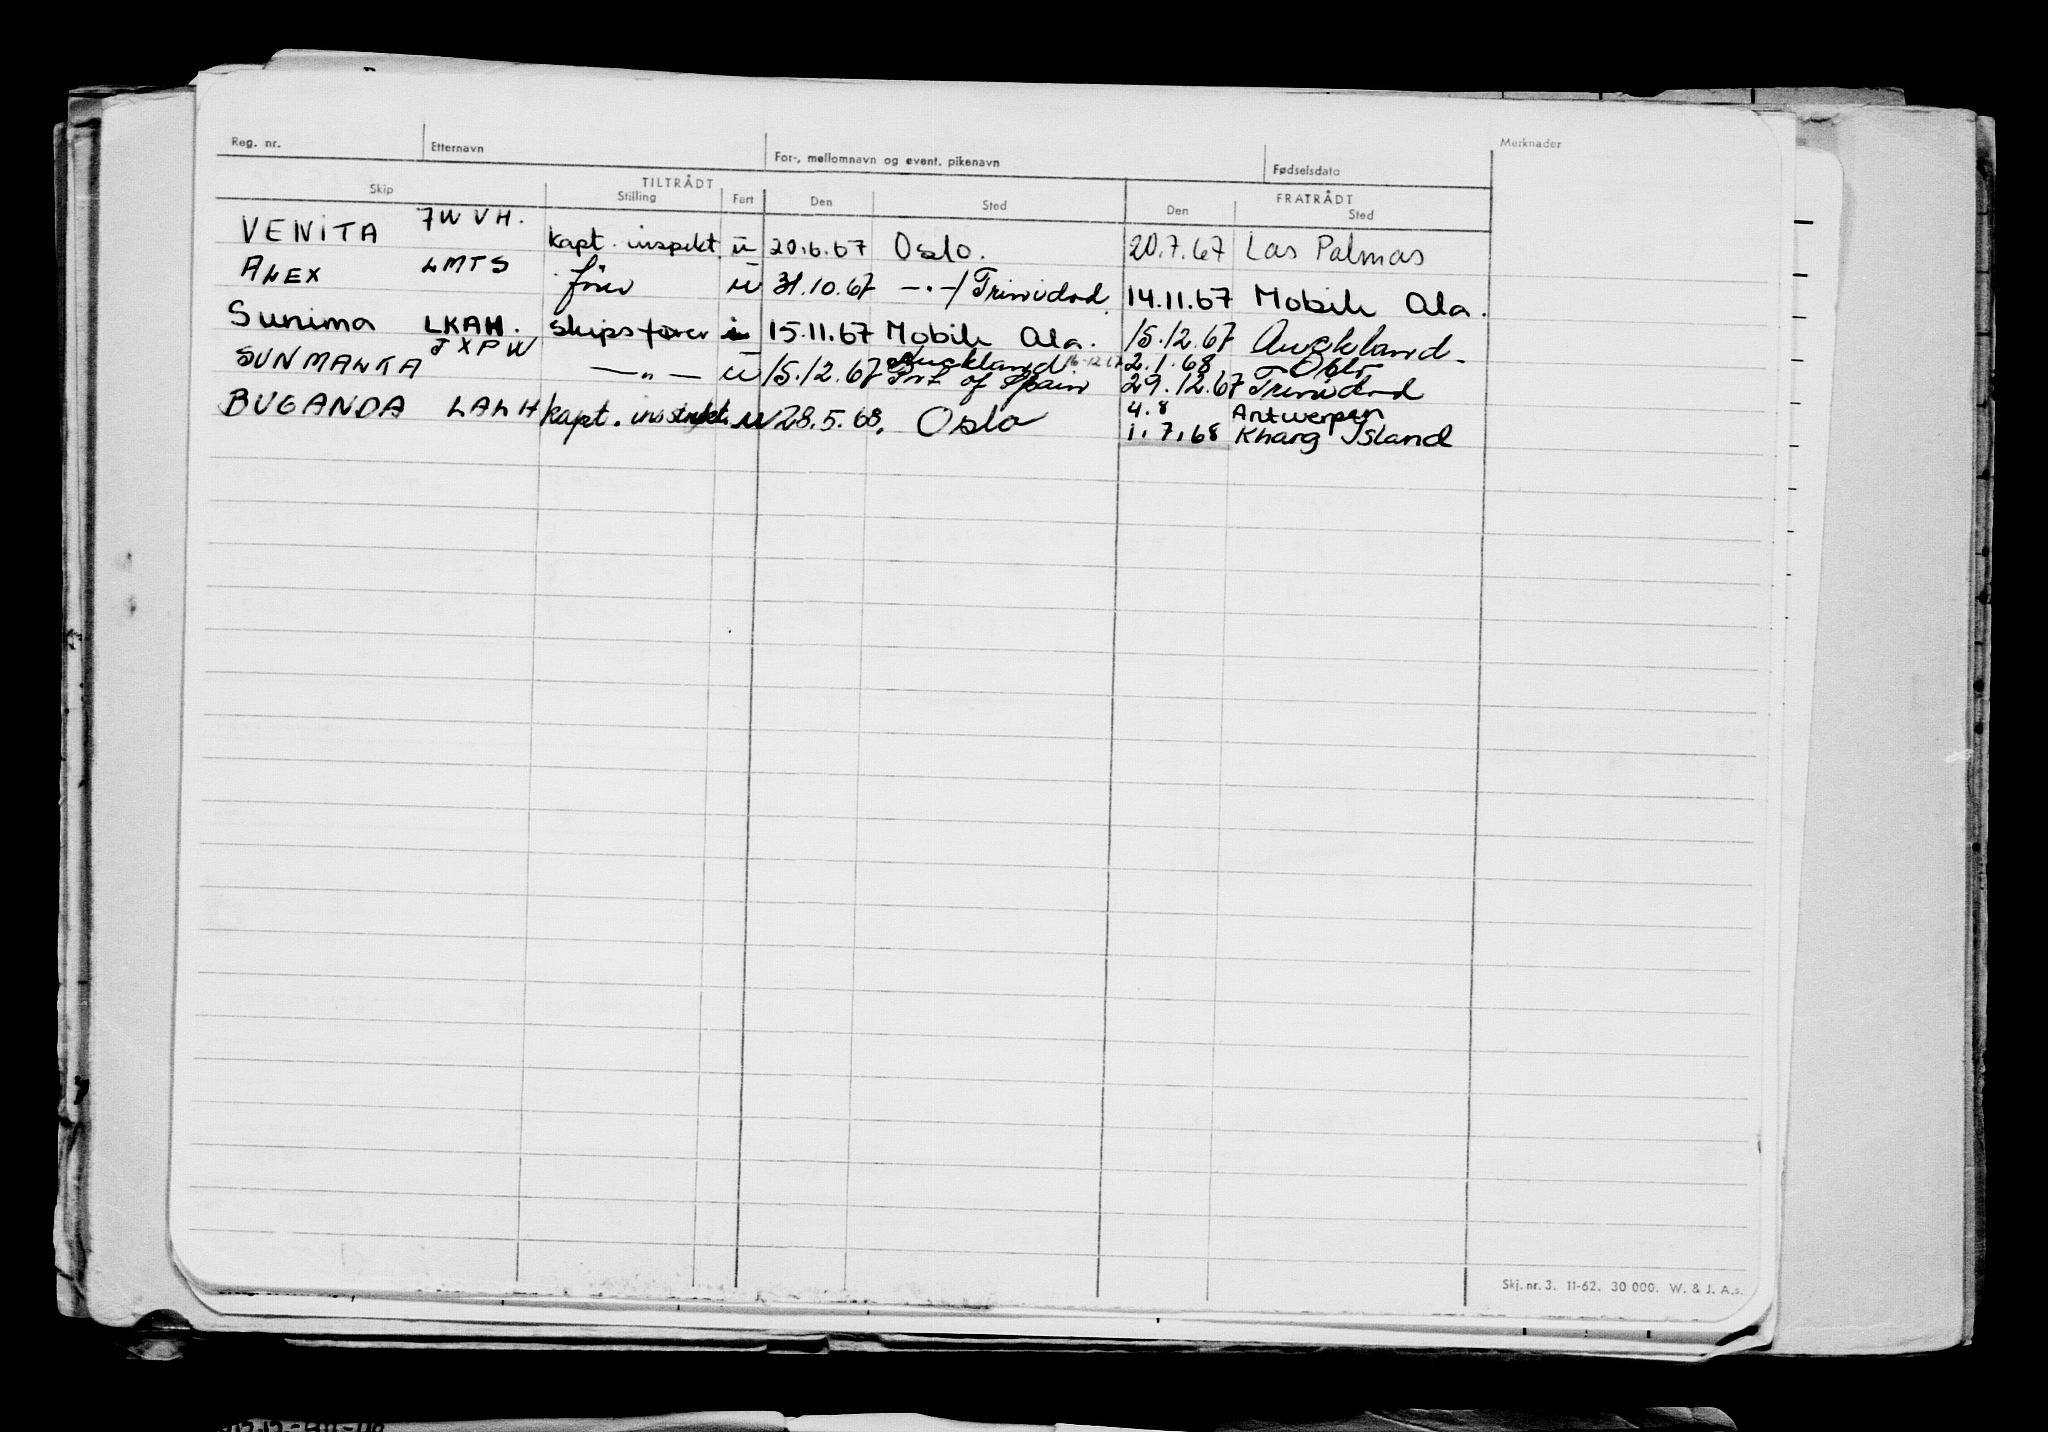 Reg. nr. Etternavn For-, mellomnavn og event. pikenavn Fødselsdato Merknader
TILTRÅDT FRATRÅDT
Skip Stilling Fart Den Sted Den Sted
VENITA 7WVH. kapt. inspekt. u 20.6.67 Oslo. 20.7.67 Las Palmas
ALEX LMTS fører u 31.10.67 —"—/Trinidad 14.11.67 Mobile Ala.
Sunima LKAH. Skipsfører u 15.11.67 Mobile Ala. 15.12.67 Auckland.
Auckland. 16-12 67 2.1.68 Oslo
SUNMALKA JXPW —"— u 15.12.67 Port of Spain 29.12.67 Trinidad
4.8 Antwerpen
BUGANDA LALH kapt. u 28.5.68. Oslo 1.7.68 Kharg Island
Skj. nr. 3. 11-62. 30 000. W. & J. A.s.